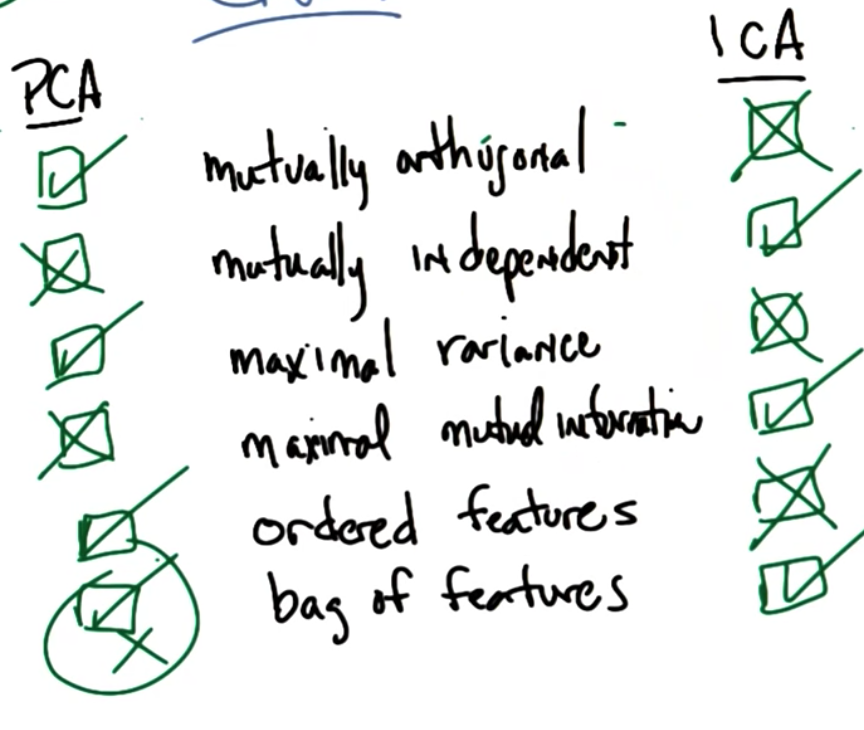 PCA
ICA
mutually orthogonal
mutually independent
maximal variance
maximal mutual information
ordered features
bag of features